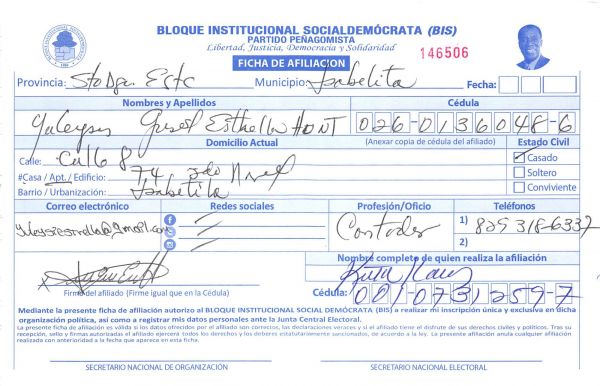 BLOQUE INSTITUCIONAL SOCIALDEMÓCRATA (BIS)
PARTIDO PEÑAGOMISTA
Libertad, Justicia, Democracia y Solidaridad
146506
FICHA DE AFILIACIÓN
Provincia: Sto Dgo. Este Municipio: Isabelita Fecha:
Nombres y Apellidos Cédula
026-0136048-6
Domicilio Actual (Anexar copia de cédula del afiliado) Estado Civil
Calle: Calle 8 Casado
#Casa / Apt./ Edificio: 74 2do Nivel Soltero
Barrio / Urbanización: Isabelita Conviviente
Correo electrónico Redes sociales Profesión/Oficio Teléfonos
Contador 1) 829 318-6337
2)
Nombre completo de quien realiza la afiliación
Firma del afiliado (Firme igual que en la Cédula) Cédula: 001-0731259-7
Mediante la presente ficha de afiliación autorizo al BLOQUE INSTITUCIONAL SOCIAL DEMÓCRATA (BIS) a realizar mi inscripción única y exclusiva en dicha
organización política, así como a registrar mis datos personales ante la Junta Central Electoral.
La presente ficha de afiliación es válida si los datos ofrecidos por el afiliado son correctos, las declaraciones veraces y si el afiliado tiene el disfrute de sus derechos civiles y políticos. Tras su
recepción, sello y firmas autorizadas el afiliado ejercerá todos los derechos y los deberes estatutariamente sancionados, de acuerdo a la ley. La presente afiliación anula cualquier afiliación
realizada con anterioridad a la fecha que aparece en esta ficha.
SECRETARIO NACIONAL DE ORGANIZACIÓN SECRETARIO NACIONAL ELECTORAL